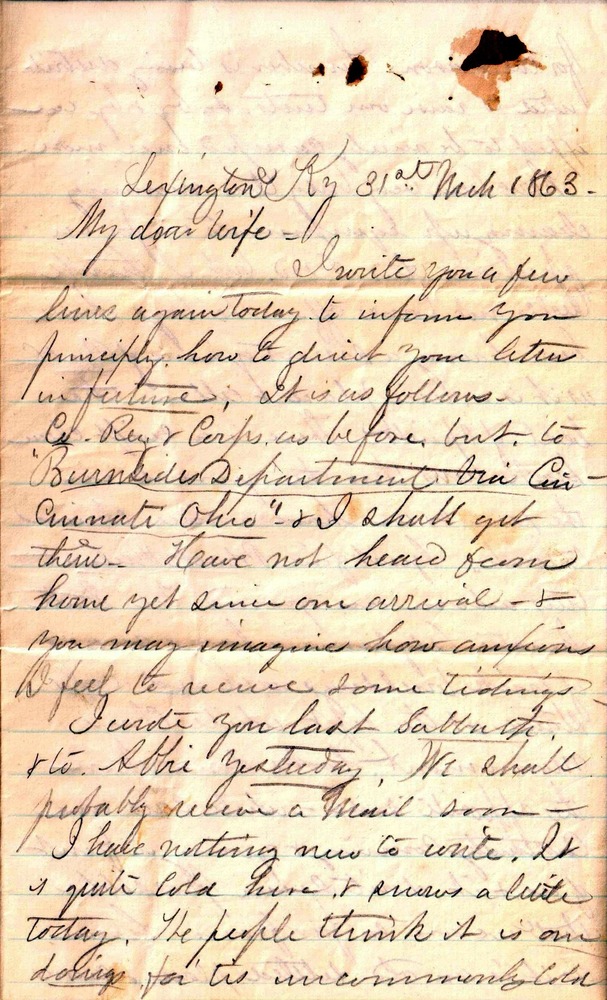 Lexington Ky 31st Mch 1863-
My dear Wife -
I write you a few
lines again today to inform you
principly, how to direct your letters
in future. It is as follows-
Co. Reg. & Corps, as before, but, to
"Burnsides Department Via Cin-
cinnati Ohio" - & I shall get
them - Have not heard from
home yet since our arrival - &
you may imagine how anxious
I feel to receive some tidings
I wrote you last Sabbath.
& to Abbie Yesterday, We shall
probably receive a Mail soon -
I have nothing new to write. It
is quite cold here, & snows a little
today. The people think it is our
doings, for tis uncommonly cold